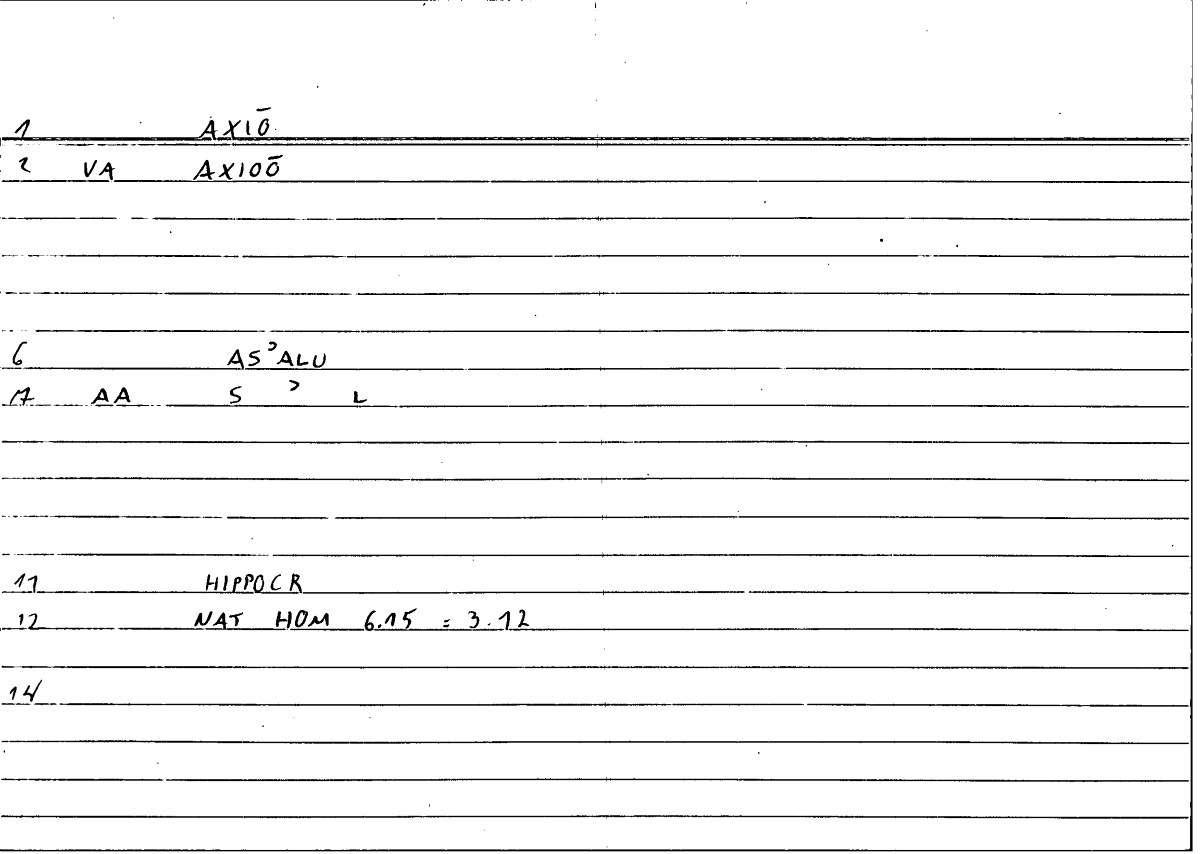 1 AXIŌ
2 VA AXIOŌ
6 AS ʾALU
17 AA S ʾ L
11 HIPPOCR
12 NAT HOM 6.15 = 3.12
14